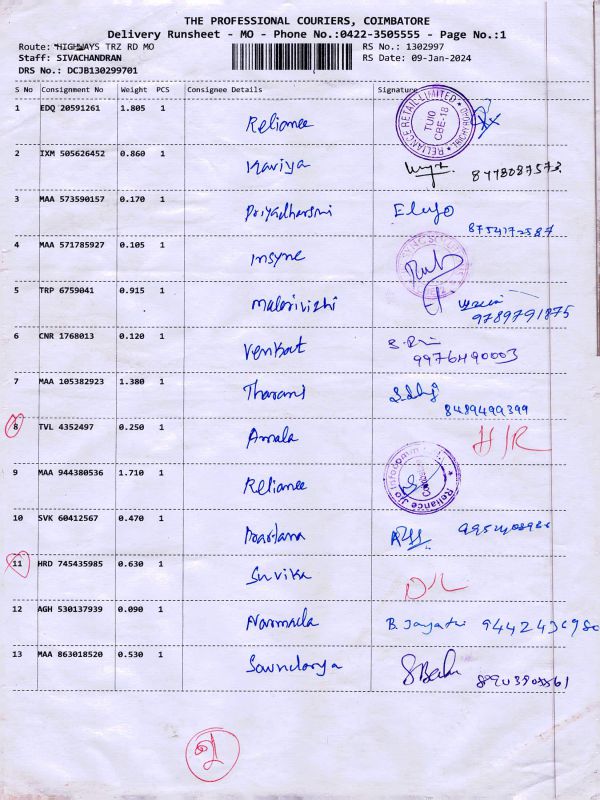 THE PROFESSIONAL COURIERS, COIMBATORE
Delivery Runsheet - MO - Phone No.:0422-3505555 - Page No.:1
Route: HIGHWAYS TRZ RD MO RS No.: 1302997
Staff: SIVACHANDRAN RS Date: 09-Jan-2024
DRS No.: DCJB130299701
S No Consignment No Weight PCS Consignee Details Signature
1 EDQ 20591261 1.805 1 Reliance
RELIANCE RETAIL LIMITED TUI0 CBE-18
2 IXM 505626452 0.860 1 Kaviya
3 MAA 573590157 0.170 1 Priyadharsni
4 MAA 571785927 0.105 1 insyne
5 TRP 6759041 0.915 1 Malarivizhi
9789791875
6 CNR 1768013 0.120 1 Venkat
9976490003
7 MAA 105382923 1.380 1 Tharani
8489499399
8 TVL 4352497 0.250 1 Amala H/R
9 MAA 944380536 1.710 1 Reliance
Reliance Jio Infocomm
10 SVK 60412567 0.470 1
11 HRD 745435985 0.630 1 Suvika D/L
12 AGH 530137939 0.090 1 Narmada B. Jayathi
13 MAA 863018520 0.530 1 Soundarya